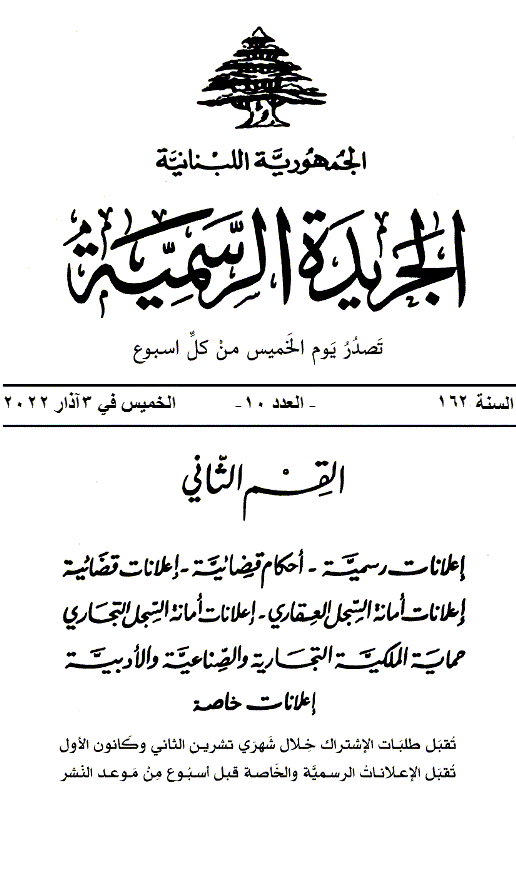 الجمهورية اللبنانية
الجريدة الرسمية
تصدر يوم الخميس من كل اسبوع
السنة ١٦٢ - العدد ١٠ - الخميس في ٣ آذار ٢٠٢٢
القسم الثاني
إعلانات رسمية - أحكام قضائية - إعلانات قضائية
إعلانات أمانة السجل العقاري - إعلانات أمانة السجل التجاري
حماية الملكية التجارية والصناعية والأدبية
إعلانات خاصة
تقبل طلبات الإشتراك خلال شهري تشرين الثاني وكانون الأول
تقبل الإعلانات الرسمية والخاصة قبل أسبوع من موعد النشر